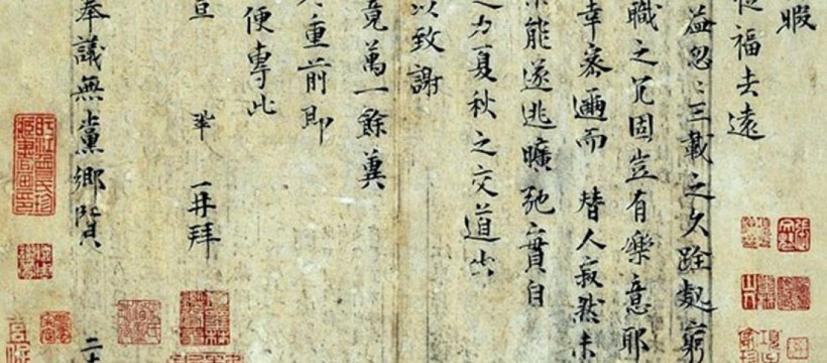 暇
福去遠
益忽〻三載之久跧處窮
職之冗固豈有樂意耶
幸密邇而替人寂然未
能遂逃曠弛之實自
之力夏秋之交道出
以致謝
竟萬一餘冀
重前即
便專此
宣 鞏再拜
奉議無黨鄉賢 二十